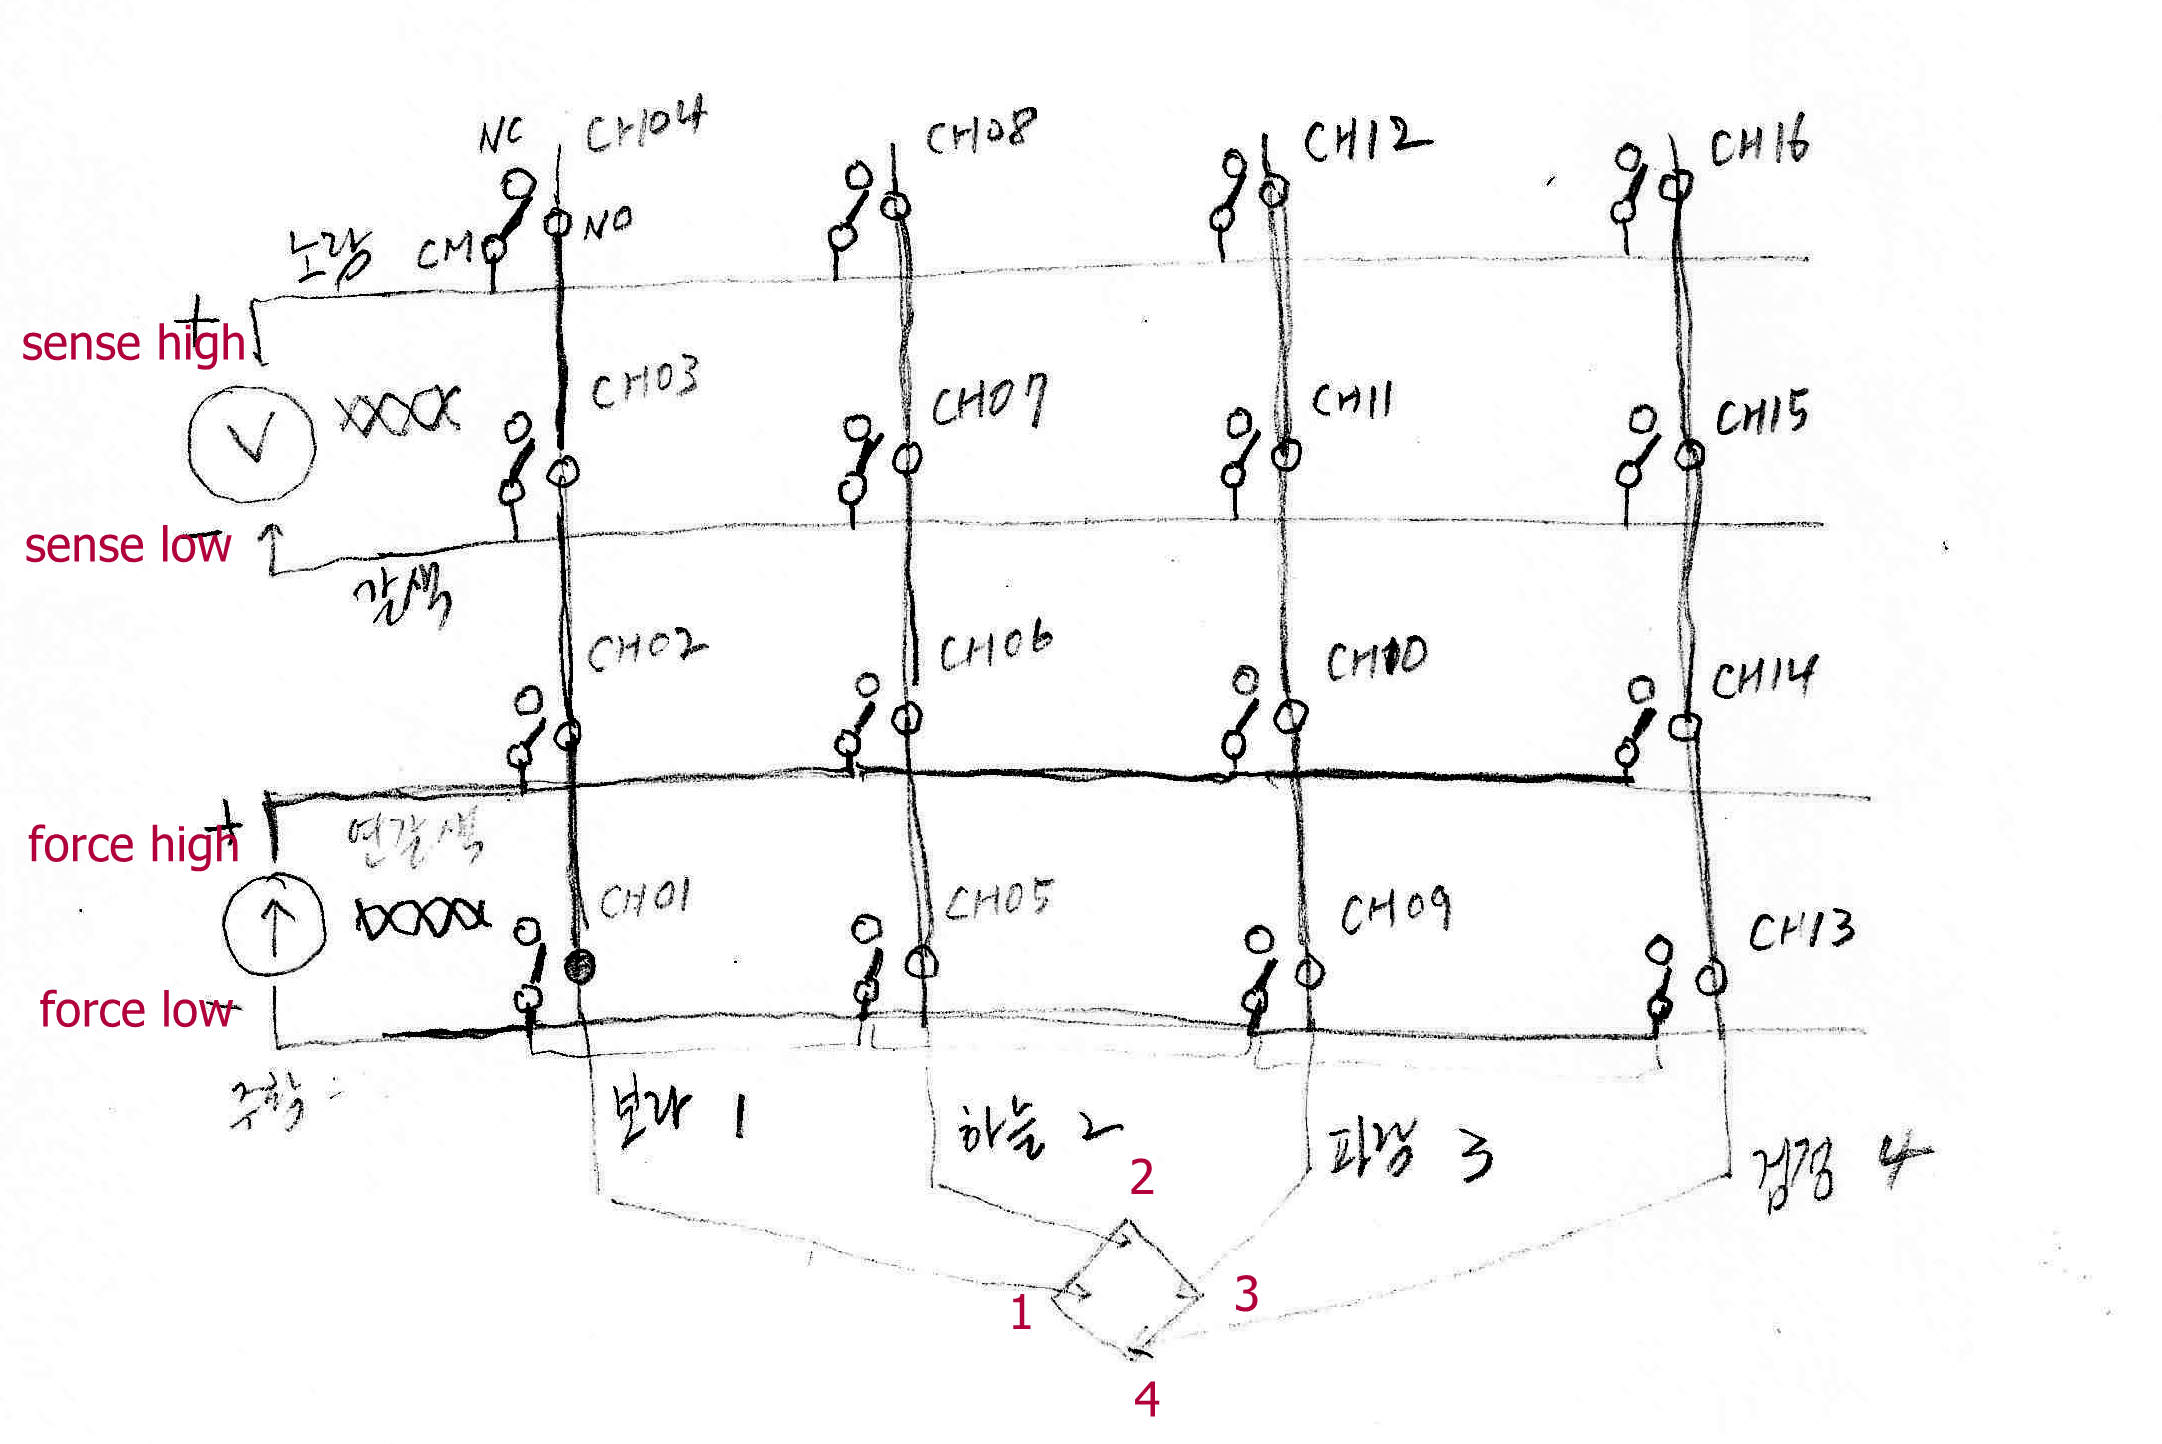 NC CH04 CH08 CH12 CH16
노랑 CM NO
+
sense high
V
CH03 CH07 CH11 CH15
-
sense low
갈색
CH02 CH06 CH10 CH14
+
force high
연갈색
CH01 CH05 CH09 CH13
-
force low
주황
보라 1 하늘 2 파랑 3 검정 4
2
1 3
4